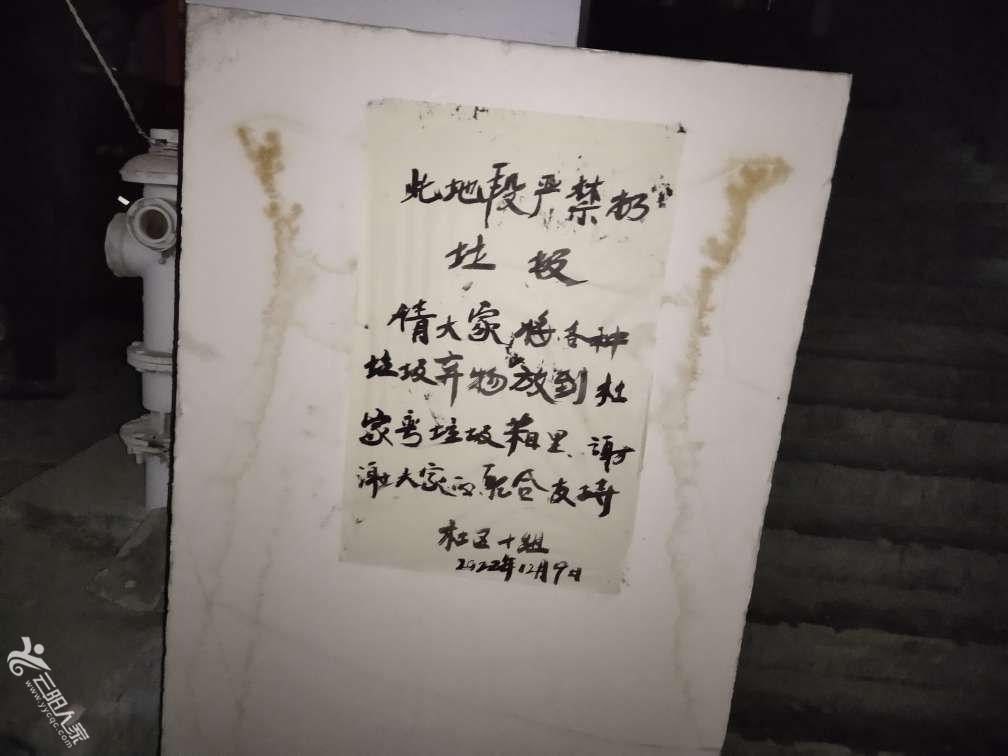 此地段严禁扔
垃圾
请大家将各种
垃圾弃物放到杜
家弯垃圾箱里、谢
谢大家的配合支持
社区十组
2022年12月9日
云阳人家
www.yycqc.com